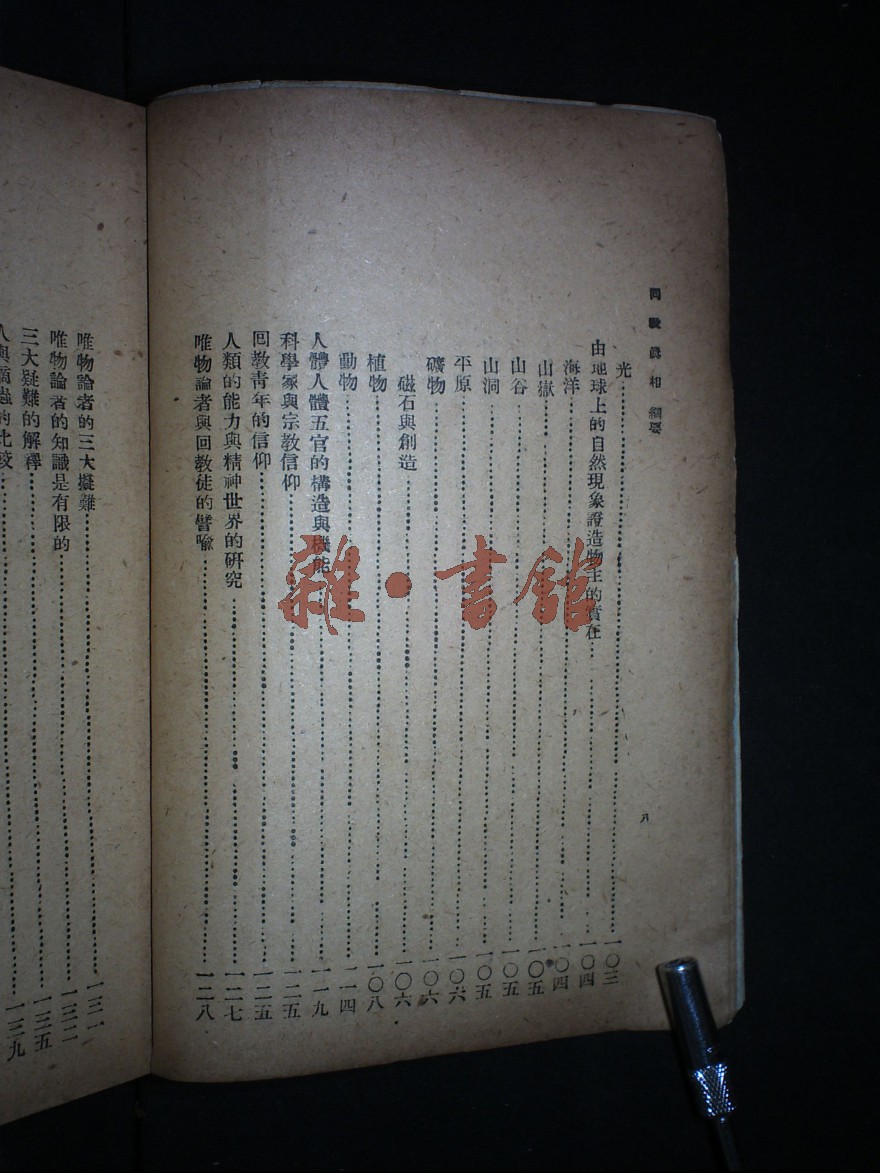 回教眞相 綱要
八
光……一〇三
由地球上的自然現象證造物主的實在……一〇四
海洋……一〇四
山嶽……一〇五
山谷……一〇五
山洞……一〇五
平原……一〇六
礦物……一〇六
磁石與創造……一〇六
植物……一〇八
動物……一一四
人體人體五官的構造與機能……一一九
科學家與宗教信仰……一二五
回教青年的信仰……一二五
人類的能力與精神世界的研究……一二七
唯物論者與回教徒的譬喩……一二八
唯物論者的三大擬難……一三一
唯物論者的知識是有限的……一三二
三大疑難的解釋……一三五
的比較……一三九
雜·書館